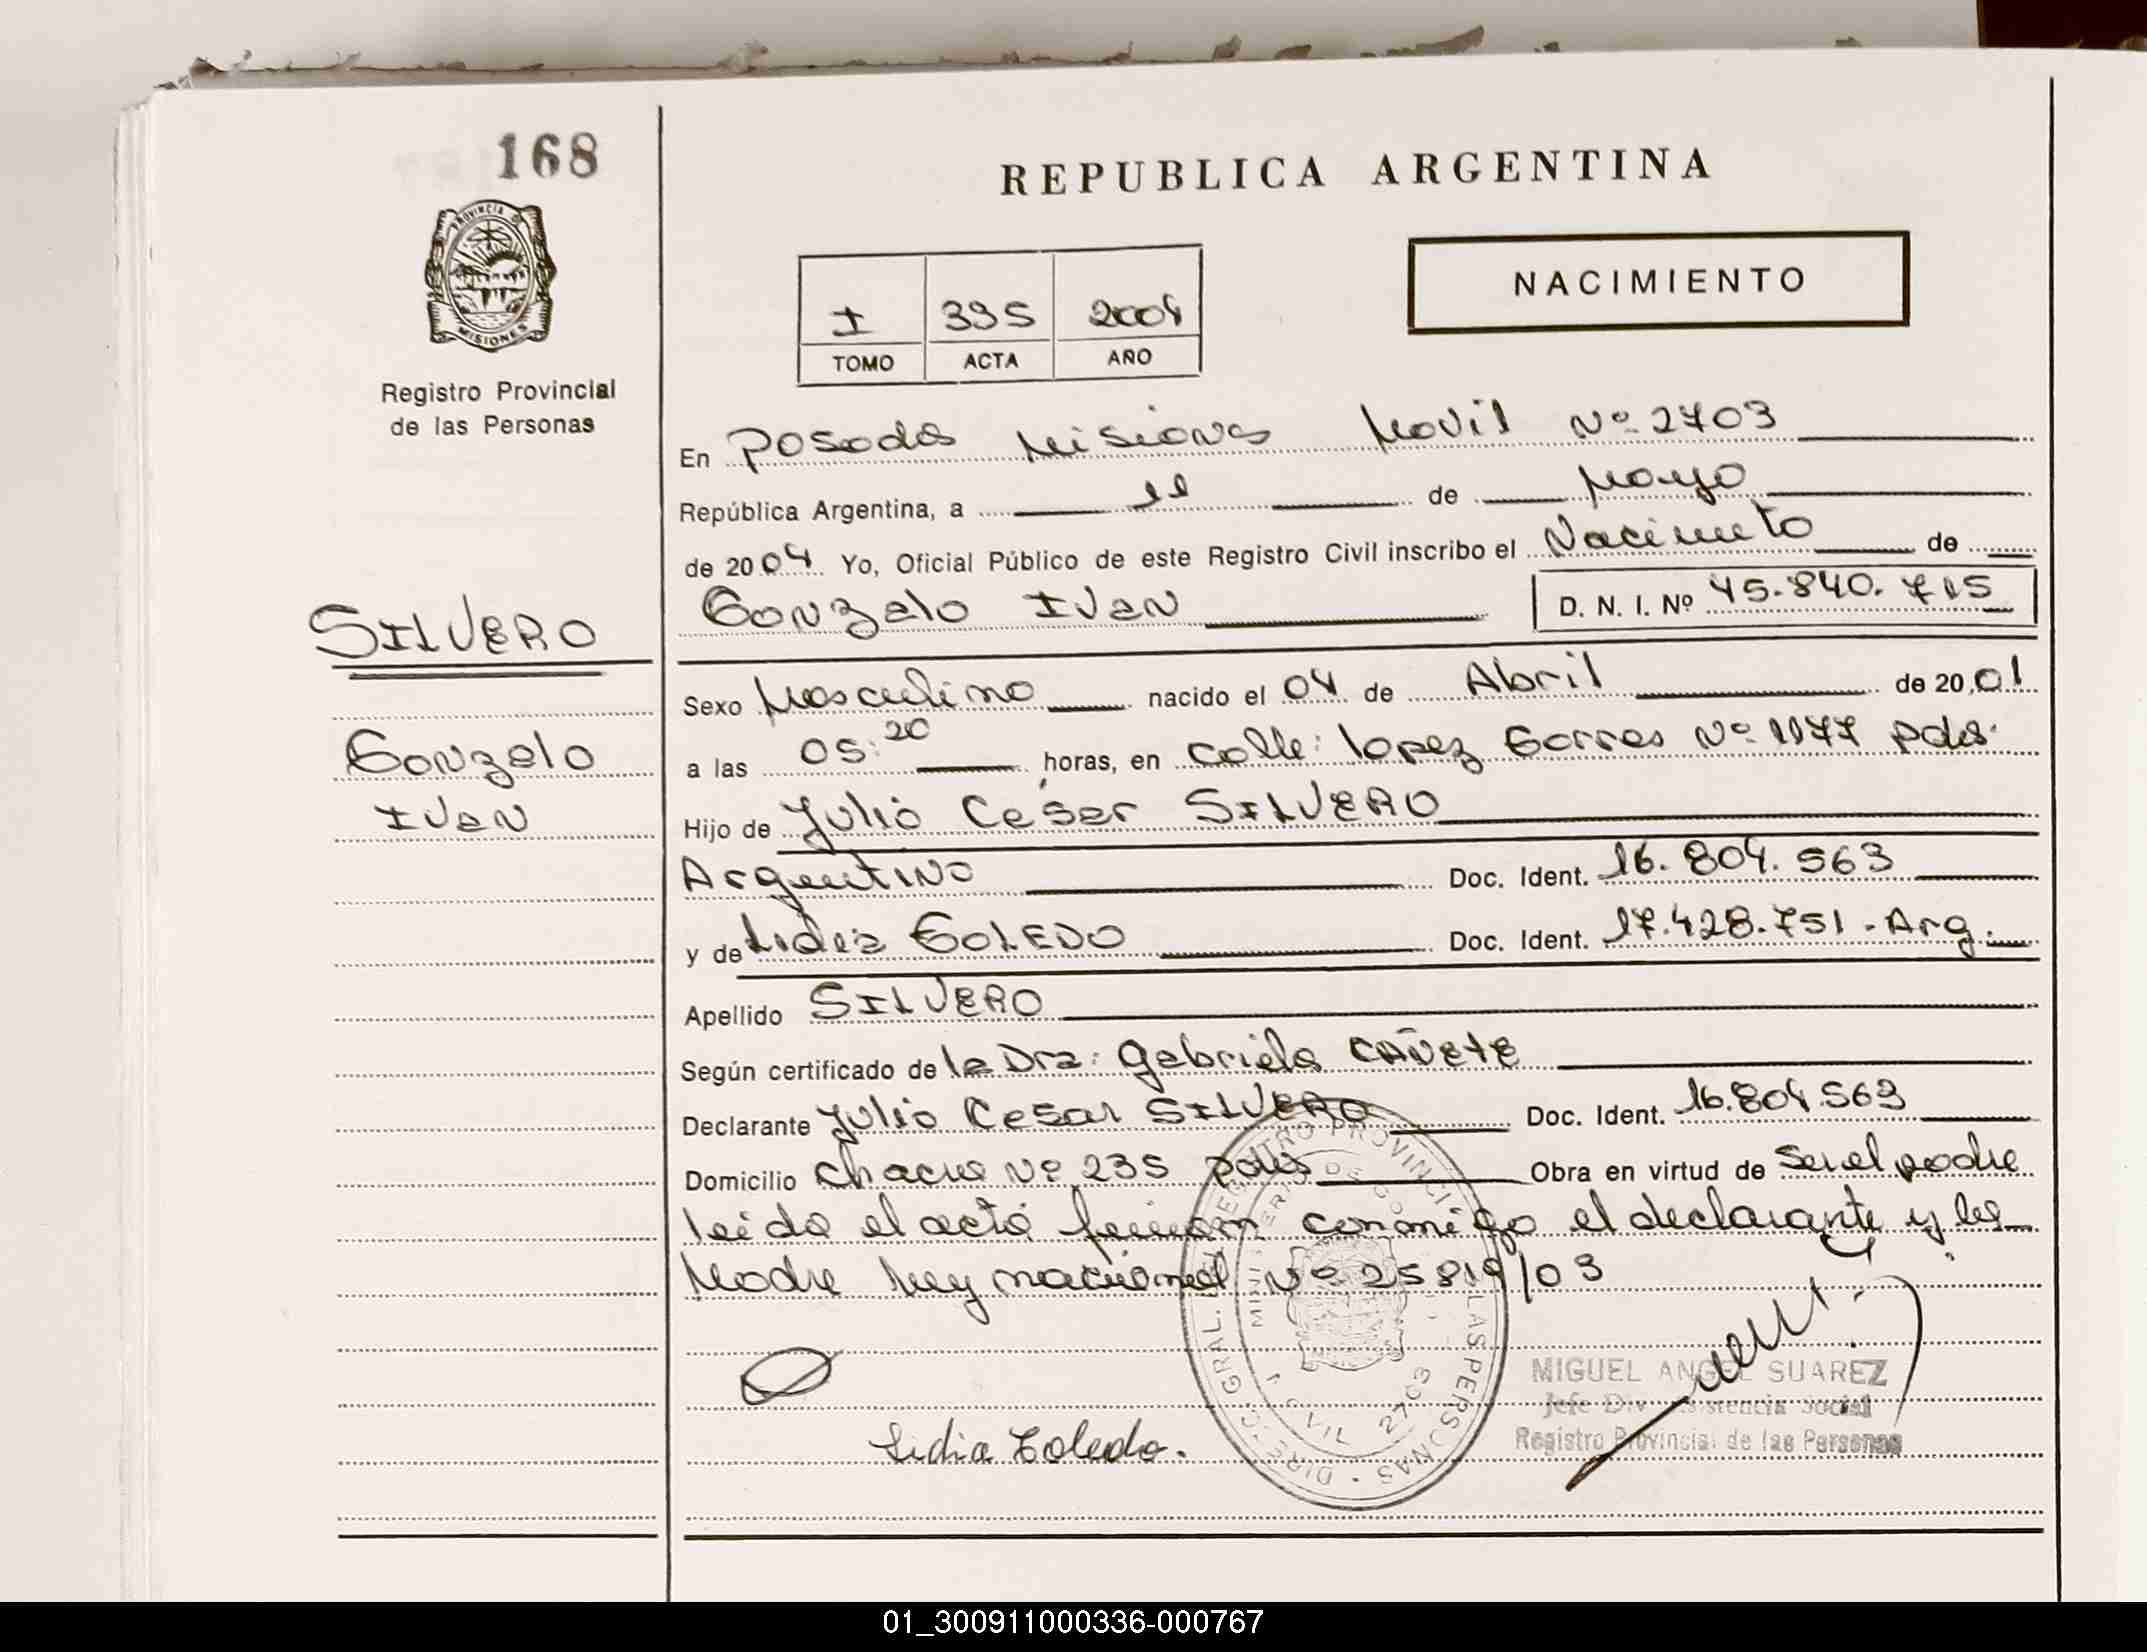 168
REPUBLICA ARGENTINA
PROVINCIA DE
MISIONES
NACIMIENTO
I 335 2004
TOMO ACTA AÑO
Registro Provincial
de las Personas
En Posadas Misiones Movil Nº 2703
República Argentina, a 11 de Mayo
de 2004 Yo, Oficial Público de este Registro Civil inscribo el Nacimiento de
Gonzalo Ivan D. N. I. Nº 45.840.715
SILVERO
Gonzalo
Ivan
Sexo Masculino nacido el 04 de Abril de 2001
a las 05:20 horas, en Calle: Lopez Torres Nº 1177 Pdas.
Hijo de Julio Cesar SILVERO
Argentino Doc. Ident. 16.804.563
y de Lidia TOLEDO Doc. Ident. 17.428.751.-Arg.
Apellido SILVERO
Según certificado de la Dra: Gabriela CAÑETE
Declarante Julio Cesar SILVERO Doc. Ident. 16.804.563
Domicilio Chacra Nº 235 Pdas Obra en virtud de Ser el padre
leida el acta firman conmigo el declarante y la
Madre Ley nacional Nº 25819/03
Lidia Toledo.
MIGUEL ANGEL SUAREZ
Jefe Div. Asistencia Social
Registro Provincial de las Personas
01_300911000336-000767